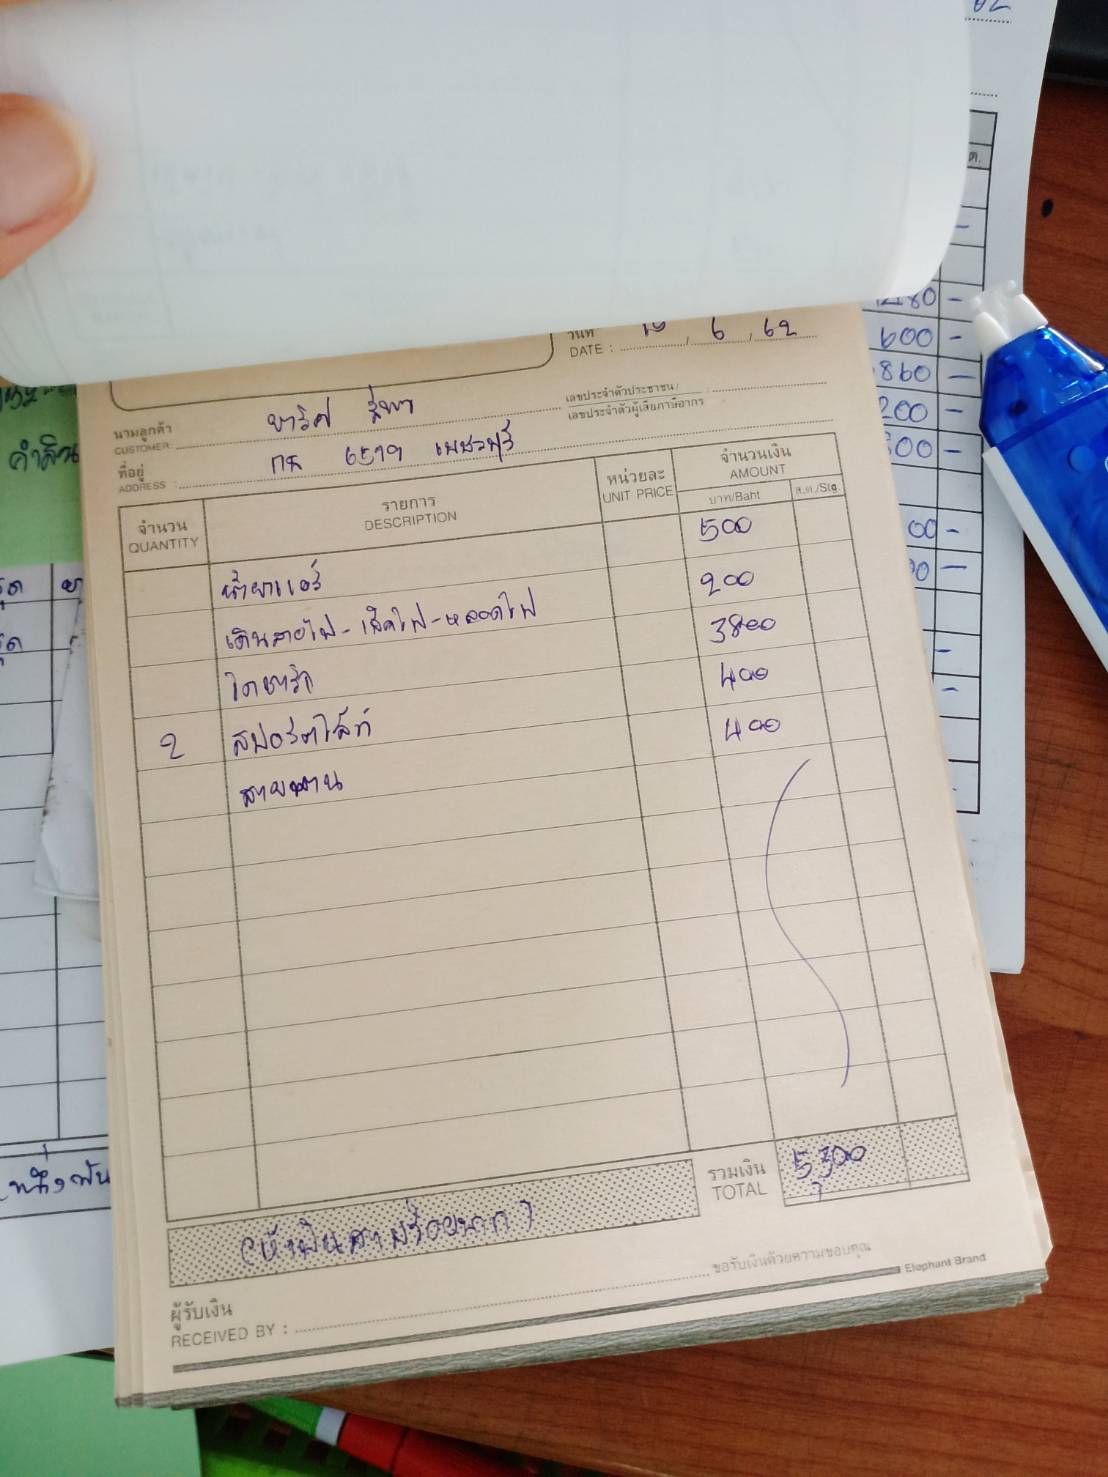 วันที่
DATE : 6 , 62
นามลูกค้า
CUSTOMER
เลขประจำตัวประชาชน/
เลขประจำตัวผู้เสียภาษีอากร
ที่อยู่
ADDRESS : กค 6579 เพชรบุรี
จำนวน
QUANTITY
รายการ
DESCRIPTION
หน่วยละ
UNIT PRICE
จำนวนเงิน
AMOUNT
บาท/Baht
ส.ต./Stg.
น้ำยาแอร์ 500
เดินสายไฟ - เช็คไฟ - หลอดไฟ 200
ไดชาร์ท 3800
2 สปอร์ตไล้ท์ 400
สายพาน 400
รวมเงิน 5300
TOTAL
(ห้าพันสามร้อยบาท)
ขอรับเงินด้วยความขอบคุณ
ผู้รับเงิน
RECEIVED BY :
Elephant Brand
600 -
860 -
200 -